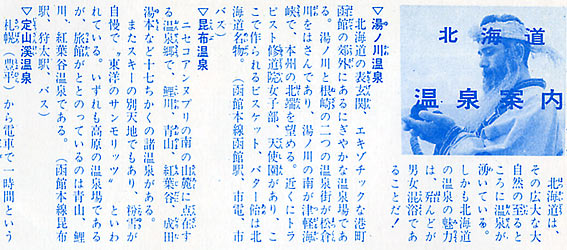 北海道
温泉案内
北海道は、
その広大な大
自然の至ると
ころに温泉が
湧いている。
しかも北海道
の温泉の魅力
は、殆んどが
男女混浴であ
ることだ！
▽湯ノ川温泉
北海道の表玄関、エキゾチックな港町
函館の郊外にあるにぎやかな温泉場であ
る。湯ノ川と根崎の二つの温泉街が松倉
川をはさんであり、湯ノ川の南が津軽海
峡で、本州の北端を望める。近くにトラ
ピスト修道院女子部、天使園があり、こ
こで作られるビスケット、バター飴は北
海道名物。（函館本線函館駅、市電、市
バス）
▽昆布温泉
ニセコアンヌプリの南の山麓に点在す
る温泉郷で、鯉川、青山、紅葉谷、成田
湯本など十七ちかくの諸温泉がある。
またスキーの別天地でもあり、粉雪が
自慢で“東洋のサンモリッツ”といわ
れている。いずれも高原の温泉場である
が、旅館がととのっているのは青山、鯉
川、紅葉谷温泉である。（函館本線昆布
駅、狩太駅、バス）
▽定山溪温泉
札幌（豊平）から電車で一時間という